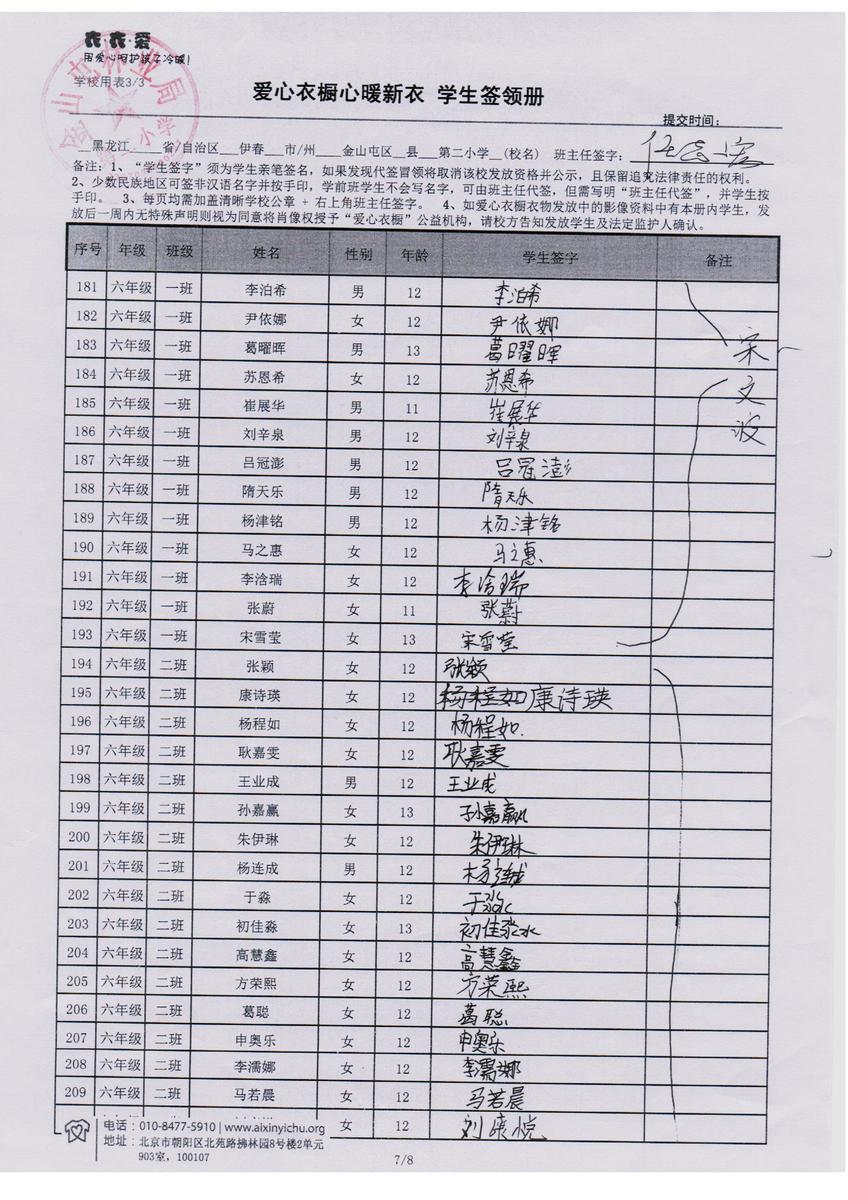 衣·衣·爱
用爱心呵护孩子冷暖!
金山屯林业局
第二小学
学校用表3/3
爱心衣橱心暖新衣 学生签领册
提交时间:
__黑龙江____省/自治区___伊春__市/州____金山屯区__县___第二小学__(校名) 班主任签字:
备注:1、“学生签字”须为学生亲笔签名,如果发现代签冒领将取消该校发放资格并公示,且保留追究法律责任的权利。
2、少数民族地区可签非汉语名字并按手印,学前班学生不会写名字,可由班主任代签,但需写明“班主任代签”,并学生按
手印。 3、每页均需加盖清晰学校公章 + 右上角班主任签字。 4、如爱心衣橱衣物发放中的影像资料中有本册内学生,发
放后一周内无特殊声明则视为同意将肖像权授予“爱心衣橱”公益机构,请校方告知发放学生及法定监护人确认。
序号 年级 班级 姓名 性别 年龄 学生签字 备注
181 六年级 一班 李泊希 男 12 李泊希
182 六年级 一班 尹依娜 女 12 尹依娜
183 六年级 一班 葛曜晖 男 13 葛曜晖
宋
184 六年级 一班 苏恩希 女 12 苏恩希
文
185 六年级 一班 崔展华 男 11 崔展华
波
186 六年级 一班 刘辛泉 男 12 刘辛泉
187 六年级 一班 吕冠澎 男 12 吕冠澎
188 六年级 一班 隋天乐 男 12 隋天乐
189 六年级 一班 杨津铭 男 12 杨津铭
190 六年级 一班 马之惠 女 12 马之惠
191 六年级 一班 李浛瑞 女 12 李浛瑞
192 六年级 一班 张蔚 女 11 张蔚
193 六年级 一班 宋雪莹 女 13 宋雪莹
194 六年级 二班 张颖 女 12 张颖
195 六年级 二班 康诗瑛 女 12 杨程如康诗瑛
196 六年级 二班 杨程如 女 12 杨程如.
197 六年级 二班 耿嘉雯 女 12 耿嘉雯
198 六年级 二班 王业成 男 12 王业成
199 六年级 二班 孙嘉赢 女 13 孙嘉赢
200 六年级 二班 朱伊琳 女 12 朱伊琳
201 六年级 二班 杨连成 男 12 杨连成
202 六年级 二班 于淼 女 12 于淼
203 六年级 二班 初佳淼 女 13 初佳淼
204 六年级 二班 高慧鑫 女 12 高慧鑫
205 六年级 二班 方荣熙 女 12 方荣熙
206 六年级 二班 葛聪 女 12 葛聪
207 六年级 二班 申奥乐 女 12 申奥乐
208 六年级 二班 李濡娜 女 12 李濡娜
209 六年级 二班 马若晨 女 12 马若晨
女 12
电话:010-8477-5910 | www.aixinyichu.org
地址:北京市朝阳区北苑路拂林园8号楼2单元
903室,100107
7/8